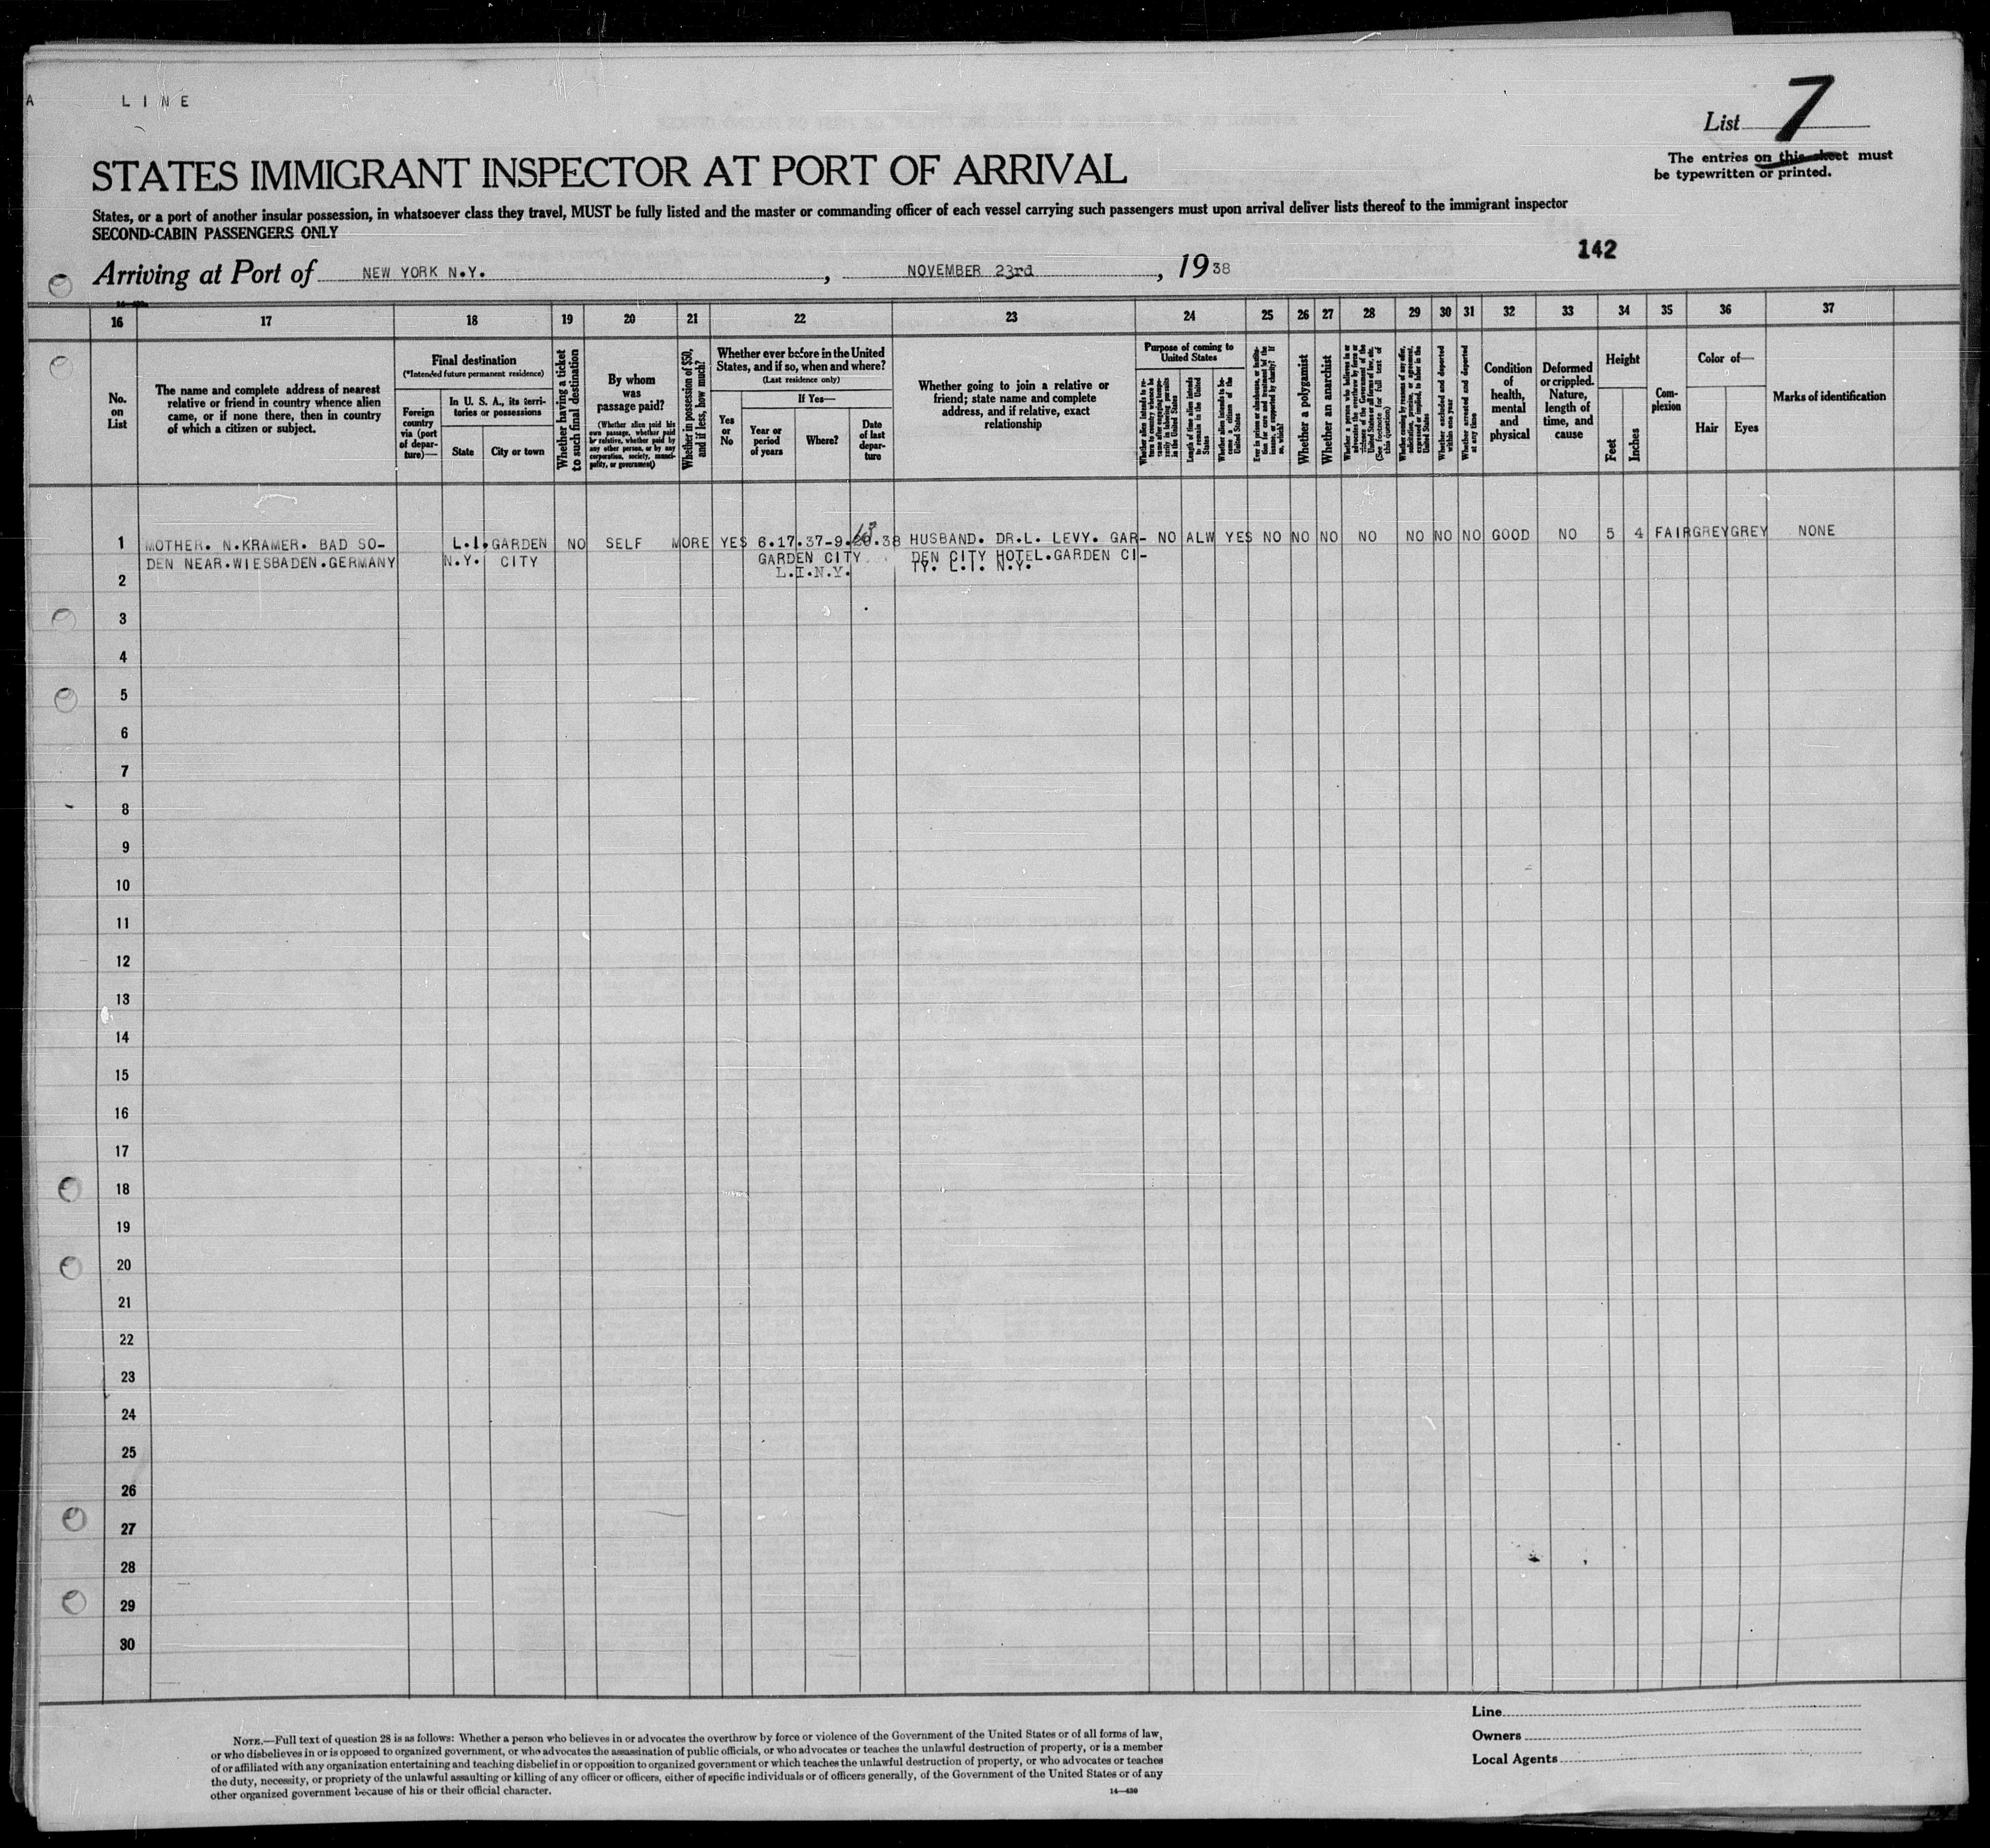 A LINE
List 7
The entries on this sheet must
be typewritten or printed.
STATES IMMIGRANT INSPECTOR AT PORT OF ARRIVAL
States, or a port of another insular possession, in whatsoever class they travel, MUST be fully listed and the master or commanding officer of each vessel carrying such passengers must upon arrival deliver lists thereof to the immigrant inspector
SECOND-CABIN PASSENGERS ONLY
142
Arriving at Port of NEW YORK N.Y. , NOVEMBER 23rd , 1938
16 17 18 19 20 21 22 23 24 25 26 27 28 29 30 31 32 33 34 35 36 37
No.
on
List
The name and complete address of nearest
relative or friend in country whence alien
came, or if none there, then in country
of which a citizen or subject.
Final destination
(*Intended future permanent residence)
Foreign
country
via (port
of depar-
ture)—
In U. S. A., its terri-
tories or possessions
State
City or town
Whether having a ticket
to such final destination
By whom
was
passage paid?
(Whether alien paid his
own passage, whether paid
by relative, whether paid by
any other person, or by any
corporation, society, munici-
pality, or government)
Whether in possession of $50,
and if less, how much?
Whether ever before in the United
States, and if so, when and where?
(Last residence only)
Yes
or
No
If Yes—
Year or
period
of years
Where?
Date
of last
depar-
ture
Whether going to join a relative or
friend; state name and complete
address, and if relative, exact
relationship
Purpose of coming to
United States
Length of time alien intends
to remain in the United
States
Whether alien intends to be-
come a citizen of the
United States
Whether a polygamist
Whether an anarchist
(See footnote for full text of
this question)
Whether excluded and deported
within one year
Whether arrested and deported
at any time
Condition
of
health,
mental
and
physical
Deformed
or crippled.
Nature,
length of
time, and
cause
Height
Feet
Inches
Com-
plexion
Color of—
Hair
Eyes
Marks of identification
1 MOTHER. N.KRAMER. BAD SO- L.I. GARDEN NO SELF MORE YES 6.17.37-9. 13 .38 HUSBAND. DR.L. LEVY. GAR- NO ALW YES NO NO NO NO NO NO NO GOOD NO 5 4 FAIR GREY GREY NONE
DEN NEAR.WIESBADEN.GERMANY N.Y. CITY GARDEN CITY DEN CITY HOTEL.GARDEN CI-
L.I.N.Y. TY. L.I. N.Y.
2
3
4
5
6
7
8
9
10
11
12
13
14
15
16
17
18
19
20
21
22
23
24
25
26
27
28
29
30
Line
Owners
Local Agents
NOTE.—Full text of question 28 is as follows: Whether a person who believes in or advocates the overthrow by force or violence of the Government of the United States or of all forms of law,
or who disbelieves in or is opposed to organized government, or who advocates the assassination of public officials, or who advocates or teaches the unlawful destruction of property, or is a member
of or affiliated with any organization entertaining and teaching disbelief in or opposition to organized government or which teaches the unlawful destruction of property, or who advocates or teaches
the duty, necessity, or propriety of the unlawful assaulting or killing of any officer or officers, either of specific individuals or of officers generally, of the Government of the United States or of any
other organized government because of his or their official character.
14—430